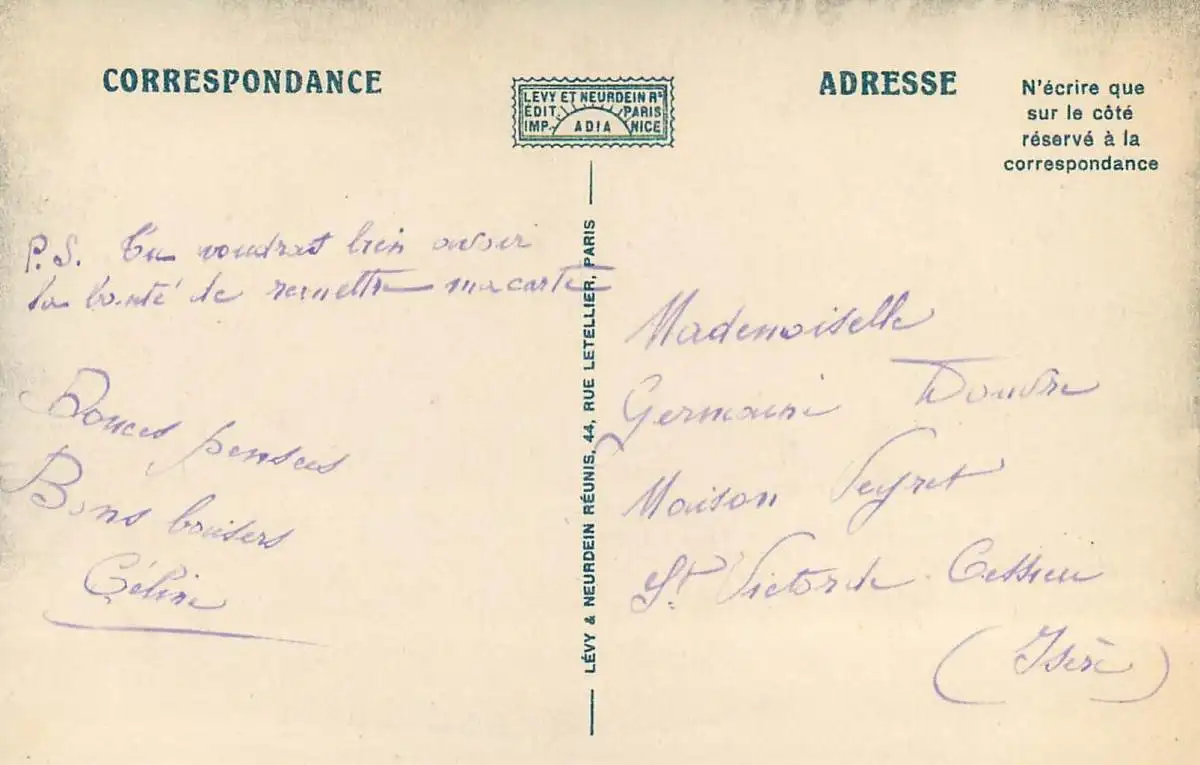 CORRESPONDANCE
LEVY ET NEURDEIN Rs
EDIT. PARIS
IMP. ADIA NICE
ADRESSE
N'écrire que
sur le côté
réservé à la
correspondance
P.S. Tu voudrat bien avoir
la bonté de remettre ma carte
Douces pensées
Bons baisers
Céline
LÉVY & NEURDEIN RÉUNIS, 44, RUE LETELLIER, PARIS
Mademoiselle
Germaine
Maison Veyret
St Victor de Cessieu
(Isère)